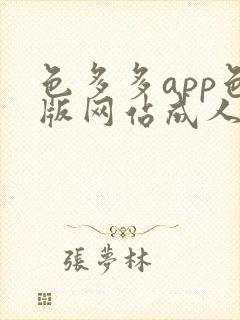 色多多app色
版网佔成人
張夢林